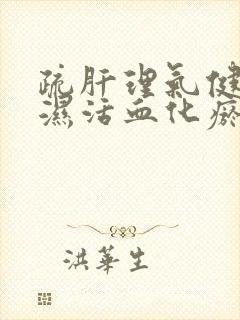 疏肝理氣健
濕活血化瘀
洪華生